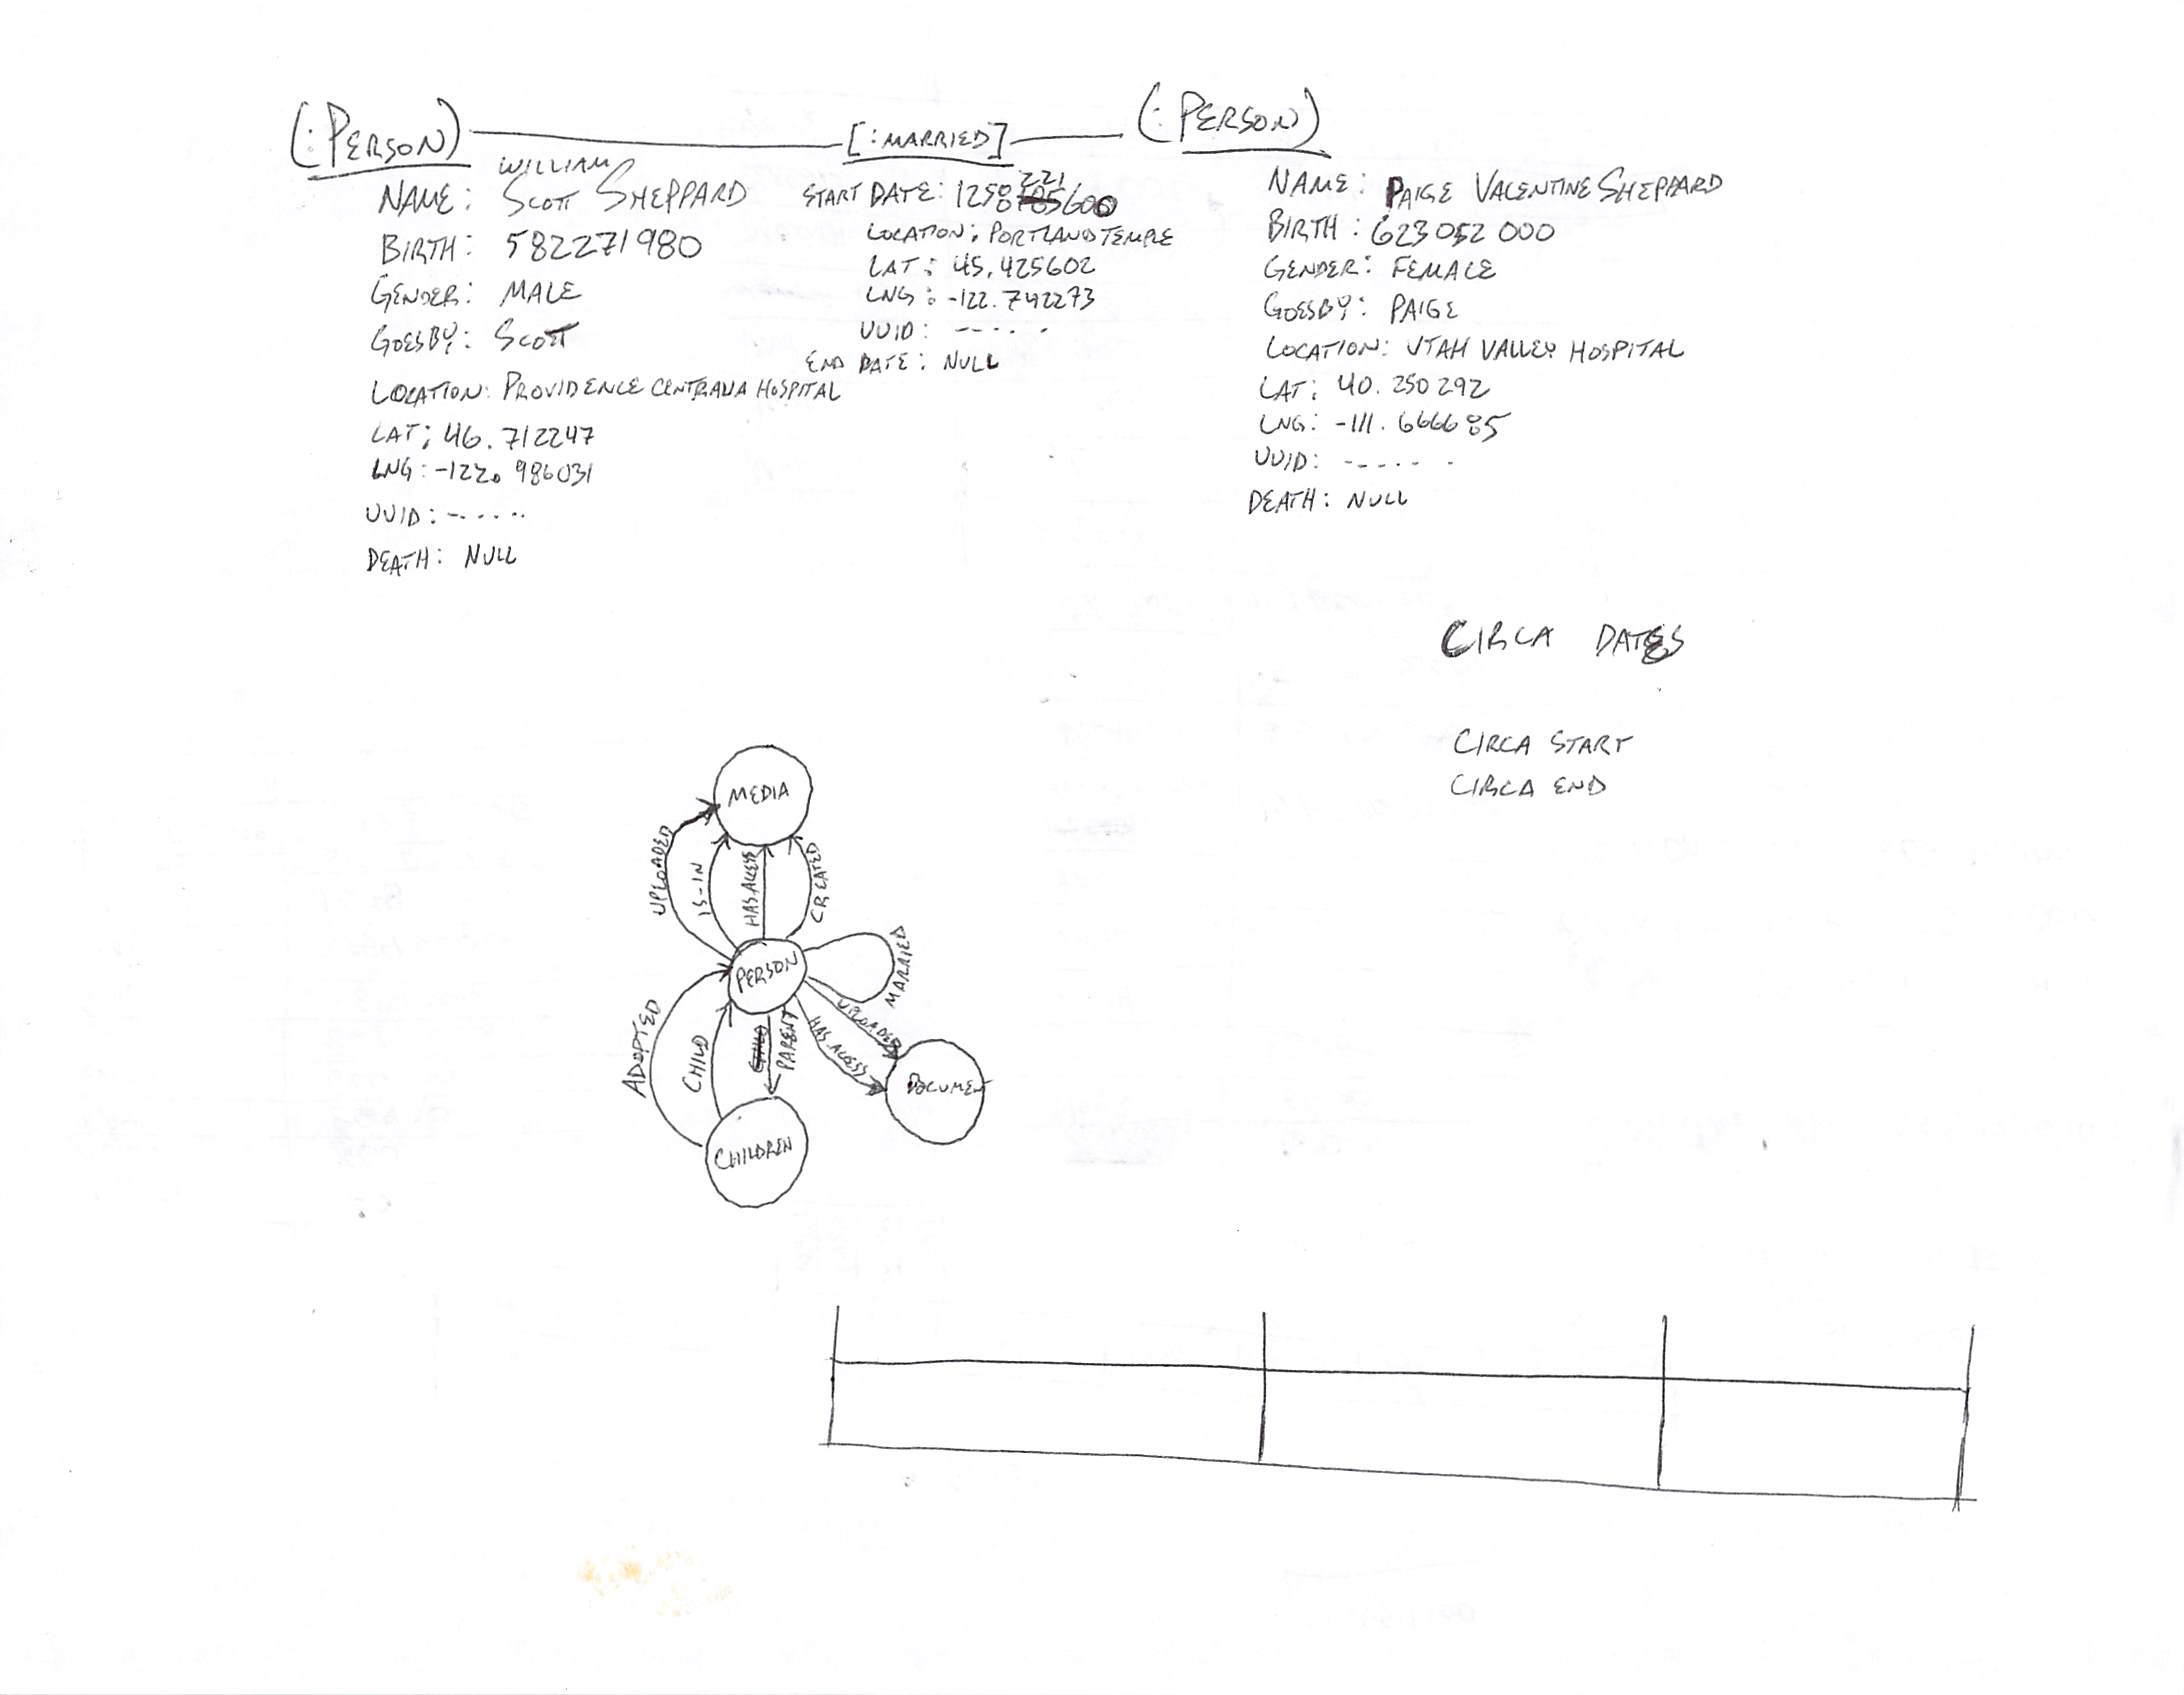 (:PERSON)
[:MARRIED]
(:PERSON)
WILLIAM
NAME: SCOTT SHEPPARD
BIRTH: 582271980
GENDER: MALE
GOESBY: SCOTT
LOCATION: PROVIDENCE CENTRALIA HOSPITAL
LAT: 46.712247
LNG: -122.986031
UUID: ------
DEATH: NULL
221
START DATE: 1250 600
LOCATION: PORTLAND TEMPLE
LAT: 45.425602
LNG: -122.742273
UUID: ------
END DATE: NULL
NAME: PAIGE VALENTINE SHEPPARD
BIRTH: 623052000
GENDER: FEMALE
GOESBY: PAIGE
LOCATION: UTAH VALLEY HOSPITAL
LAT: 40.250292
LNG: -111.666685
UUID: ------
DEATH: NULL
CIRCA DATES
CIRCA START
CIRCA END
MEDIA
UPLOADED
IS-IN
HAS ACCESS
CREATED
PERSON
MARRIED
ADOPTED
CHILD
CHILD
PARENT
UPLOADED
HAS ACCESS
DOCUMENT
CHILDREN